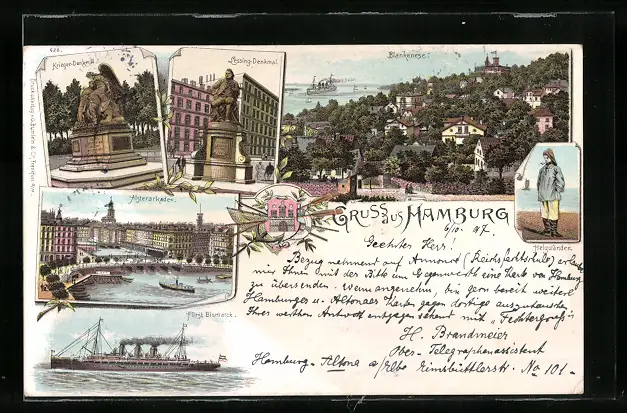 626.
Krieger-Denkmal.
Lessing-Denkmal.
Blankenese.
Alsterarkaden.
Helgoländer.
Fürst Bismarck.
GRUSS AUS HAMBURG
6/10. 97.
Geehrter Herr!
Bezug nehmend auf Annonce (Reichsadtshalle) erlaube
mir Ihnen mit der Bitte um Gegenwerth eine Karte von Hamburg
zu übersenden. Wenn angenehm, bin gern bereit weitere
Hamburger u. Altonaer Karten gegen dortige auszutauschen
Ihrer werthen Antwort entgegensehend mit
H. Brandmeier
Ober-Telegraphenassistent
Hamburg-Altona a/Elbe Eimsbüttlerstr. No 101-